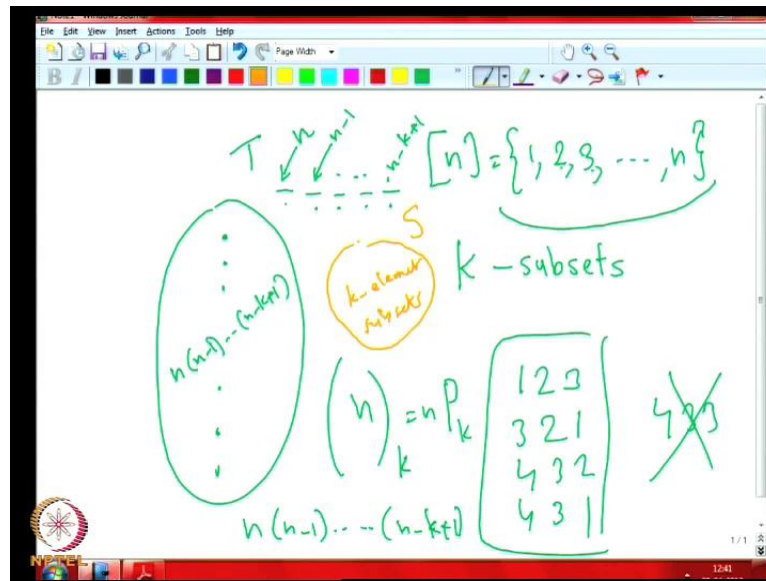 Note1 - Windows Journal
File Edit View Insert Actions Tools Help
Page Width
B I
T n n-1 ... n-k+1 [n] = {1, 2, 3, ..., n}
S
k-element
subsets
k - subsets
n(n-1)...(n-k+1)
(n)k = nPk
1 2 3
3 2 1
4 3 2
4 3 1
4 3
n(n-1)....(n-k+1)
1 / 1
NPTEL
12:41